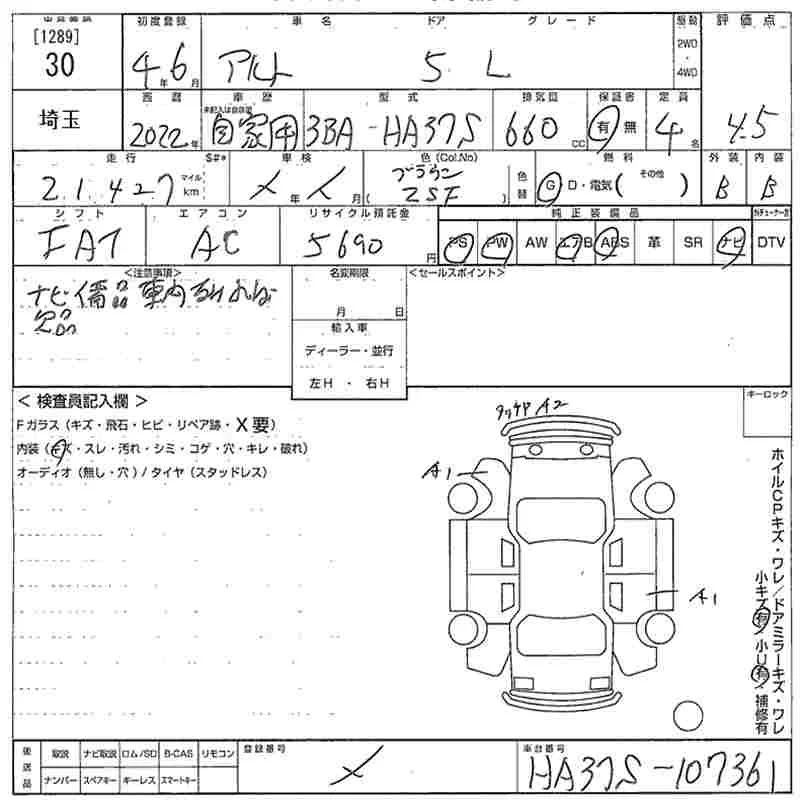 [1289]
30
埼玉
初度登録
4年6月
車名
アルト
ドア
5
グレード
L
駆動
2WD
・
4WD
評価点
4.5
西暦
2022年
車歴
未記入は自家用
自家用
型式
3BA-HA37S
排気量
660cc
保証書
有・無
定員
4名
走行
21,427
マイル
km
S#*
車検
メ年メ月
色(Col.No)
ブラウン
( ZSF )
色替
燃料
G・D・電気( その他 )
外装
B
内装
B
シフト
FAT
エアコン
AC
リサイクル預託金
5690円
純正装備品
PS PW AW エアB ABS 革 SR ナビ DTV
<注意事項>
ナビ備品車内なければ
欠品
名変期限
月 日
輸入車
ディーラー・並行
左H ・ 右H
<セールスポイント>
< 検査員記入欄 >
Fガラス(キズ・飛石・ヒビ・リペア跡・X要)
内装(キズ・スレ・汚れ・シミ・コゲ・穴・キレ・破れ)
オーディオ(無し・穴)/タイヤ(スタッドレス)
キーロック
A2
A1
A1
ホイルCPキズ・ワレ/ドアミラーキズ・ワレ
小キズ有/小U有/補修有
後送品
取説 ナビ取説 ロム/SD B-CAS リモコン
ナンバー スペアキー キーレス スマートキー
登録番号
メ
車台番号
HA37S-107361